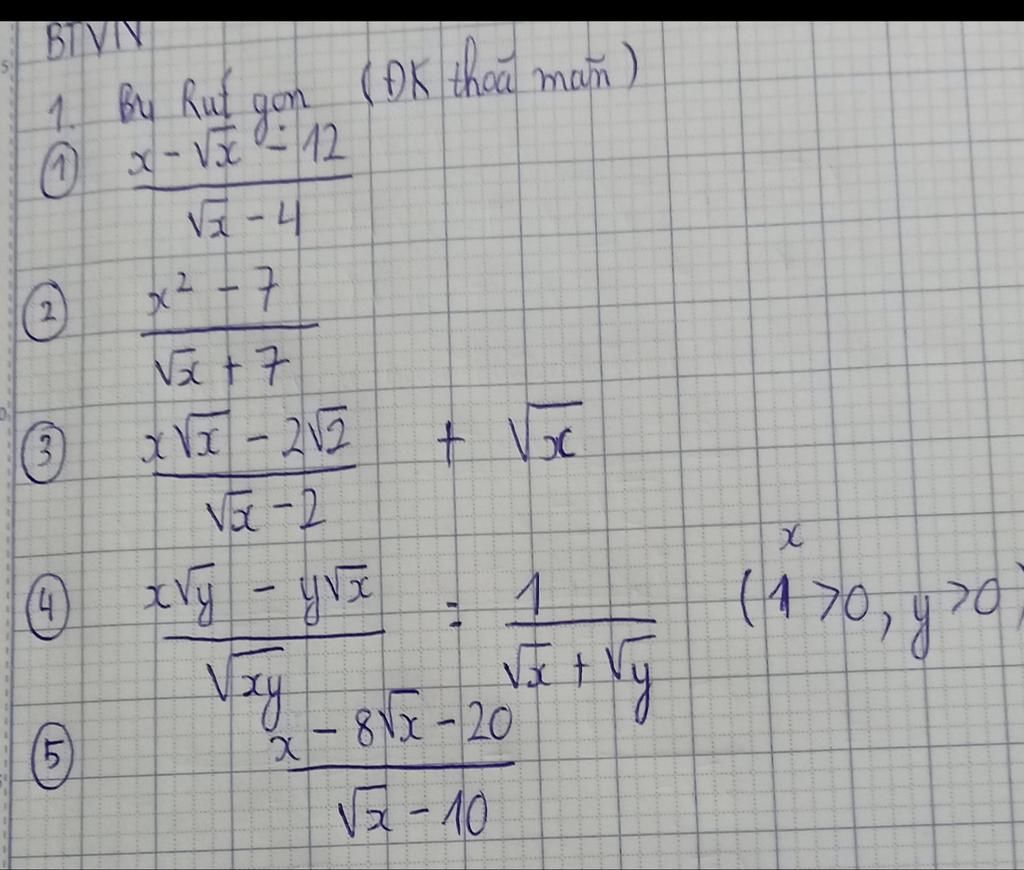 BTVN
1. By Rut gọn (ĐK thoả mãn)
① x - √x - 12
√x - 4
② x² - 7
√x + 7
③ x√x - 2√2 + √x
√x - 2
④ x√y - y√x = 1 (x>0, y>0)
√xy √x + √y
⑤ x - 8√x - 20
√x - 10